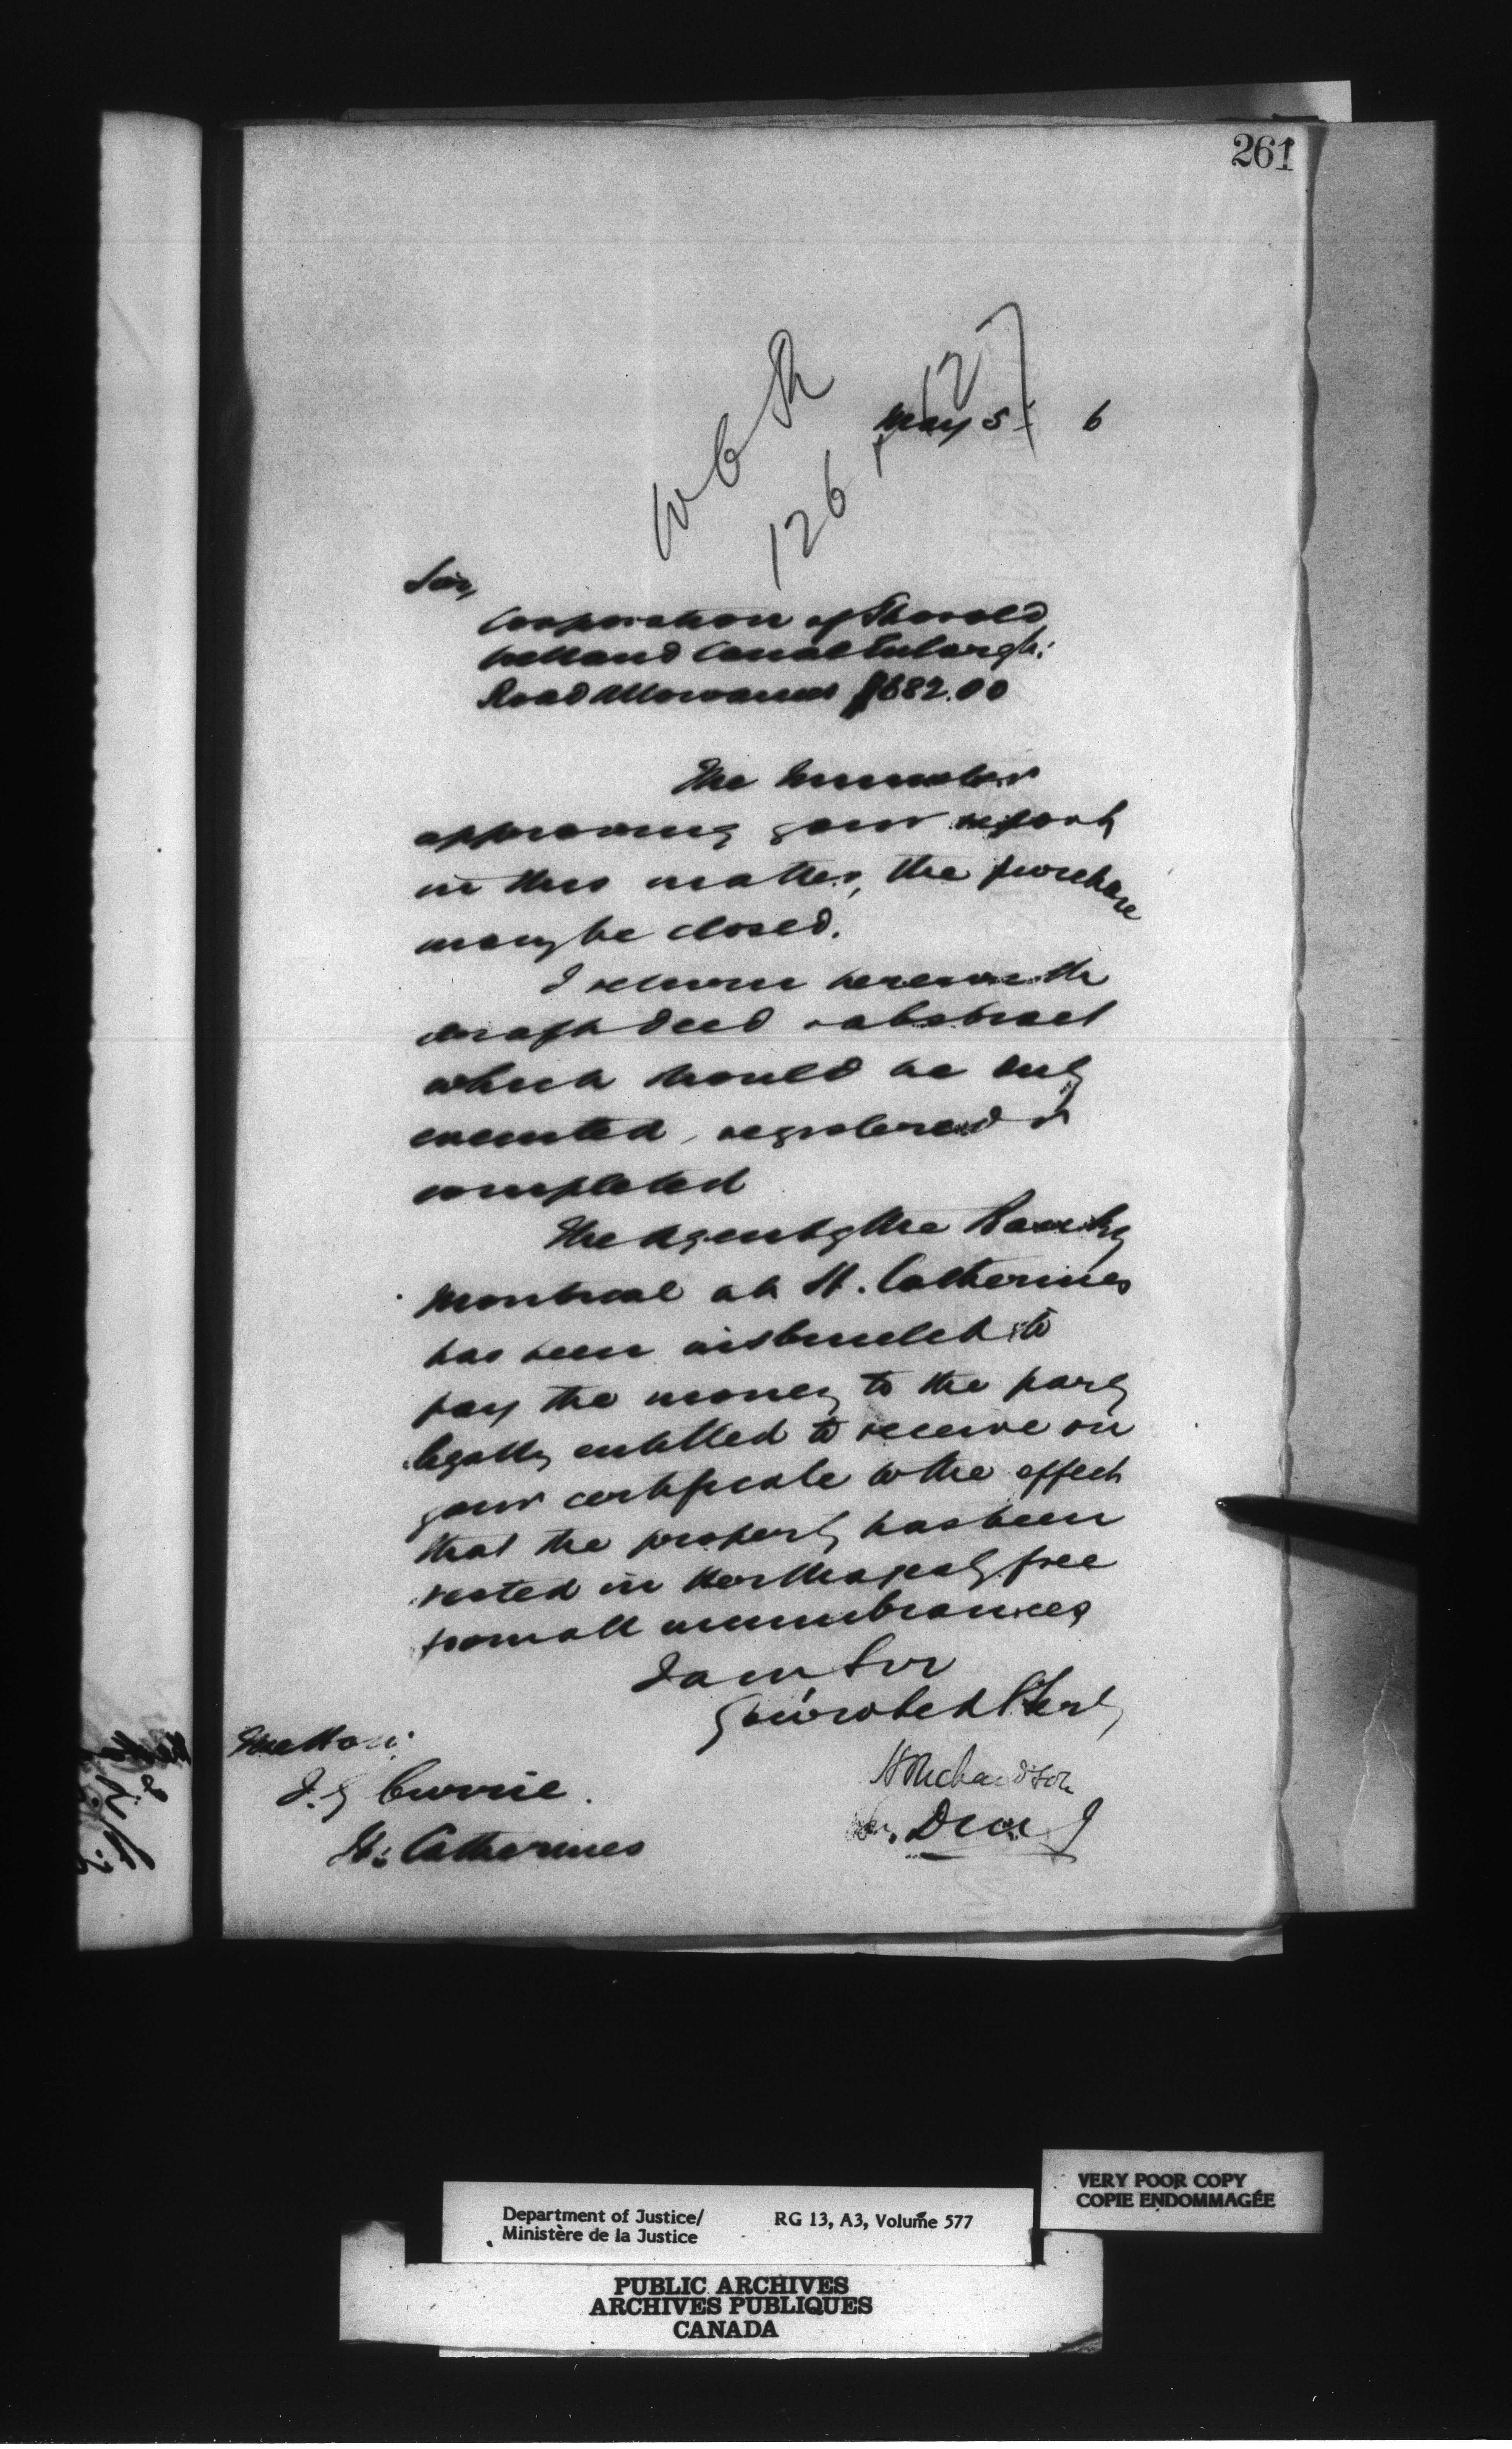 261
126
May 5 6
Sir,
Corporation of Thorold
Welland Canal Enlargt:
Road Allowances $682.00
The Minister
approving your report
in this matter, the purchase
may be closed.
I return herewith
draft deed & abstract
which should be duly
executed, registered &
completed
The Agent of the Bank of
Montreal at St. Catherines
has been instructed to
pay the money to the party
legally entitled to receive on
your certificate to the effect
that the property has been
vested in Her Majesty free
from all incumbrances
I am Sir
Your obed Servt
H Richardson
D m J
The Hon:
J. G Currie.
St: Catherines
VERY POOR COPY
COPIE ENDOMMAGÉE
Department of Justice/ RG 13, A3, Volume 577
Ministère de la Justice
PUBLIC ARCHIVES
ARCHIVES PUBLIQUES
CANADA